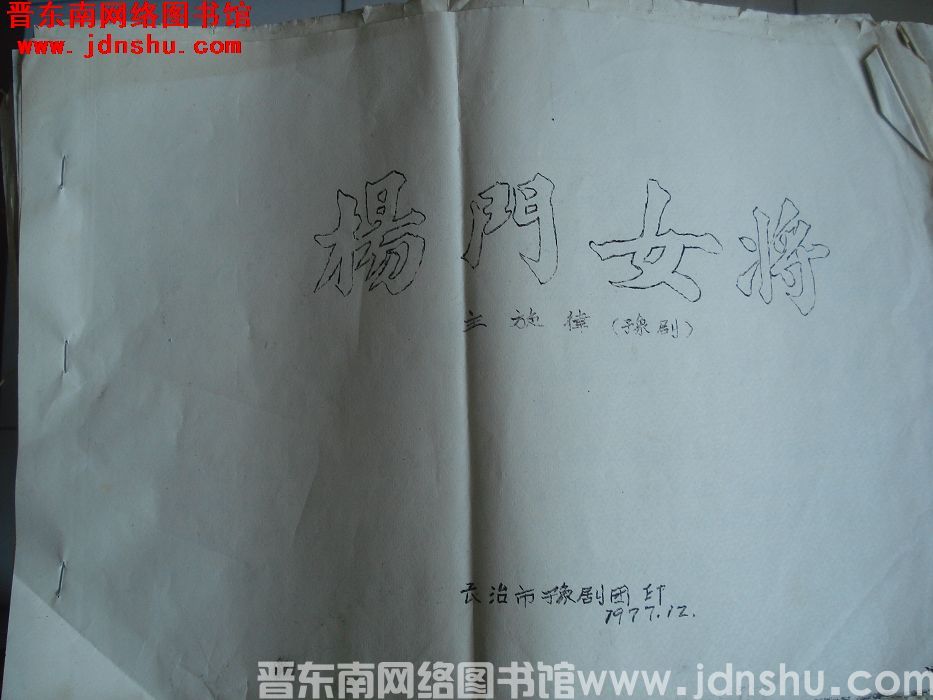 晋东南网络图书馆
www.jdnshu.com
楊門女将
主旋律(豫剧)
长治市豫剧团印
1977.12.
晋东南网络图书馆www.jdnshu.com